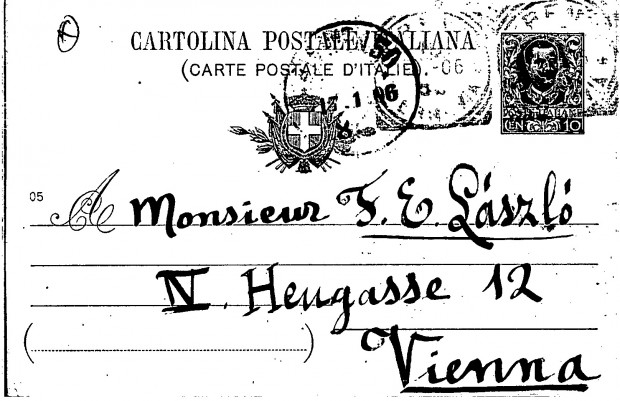 CARTOLINA POSTALE ITALIANA
(CARTE POSTALE D'ITALIE). -06
1 06
10
05
A Monsieur F. E. László
IV. Heugasse 12
Vienna